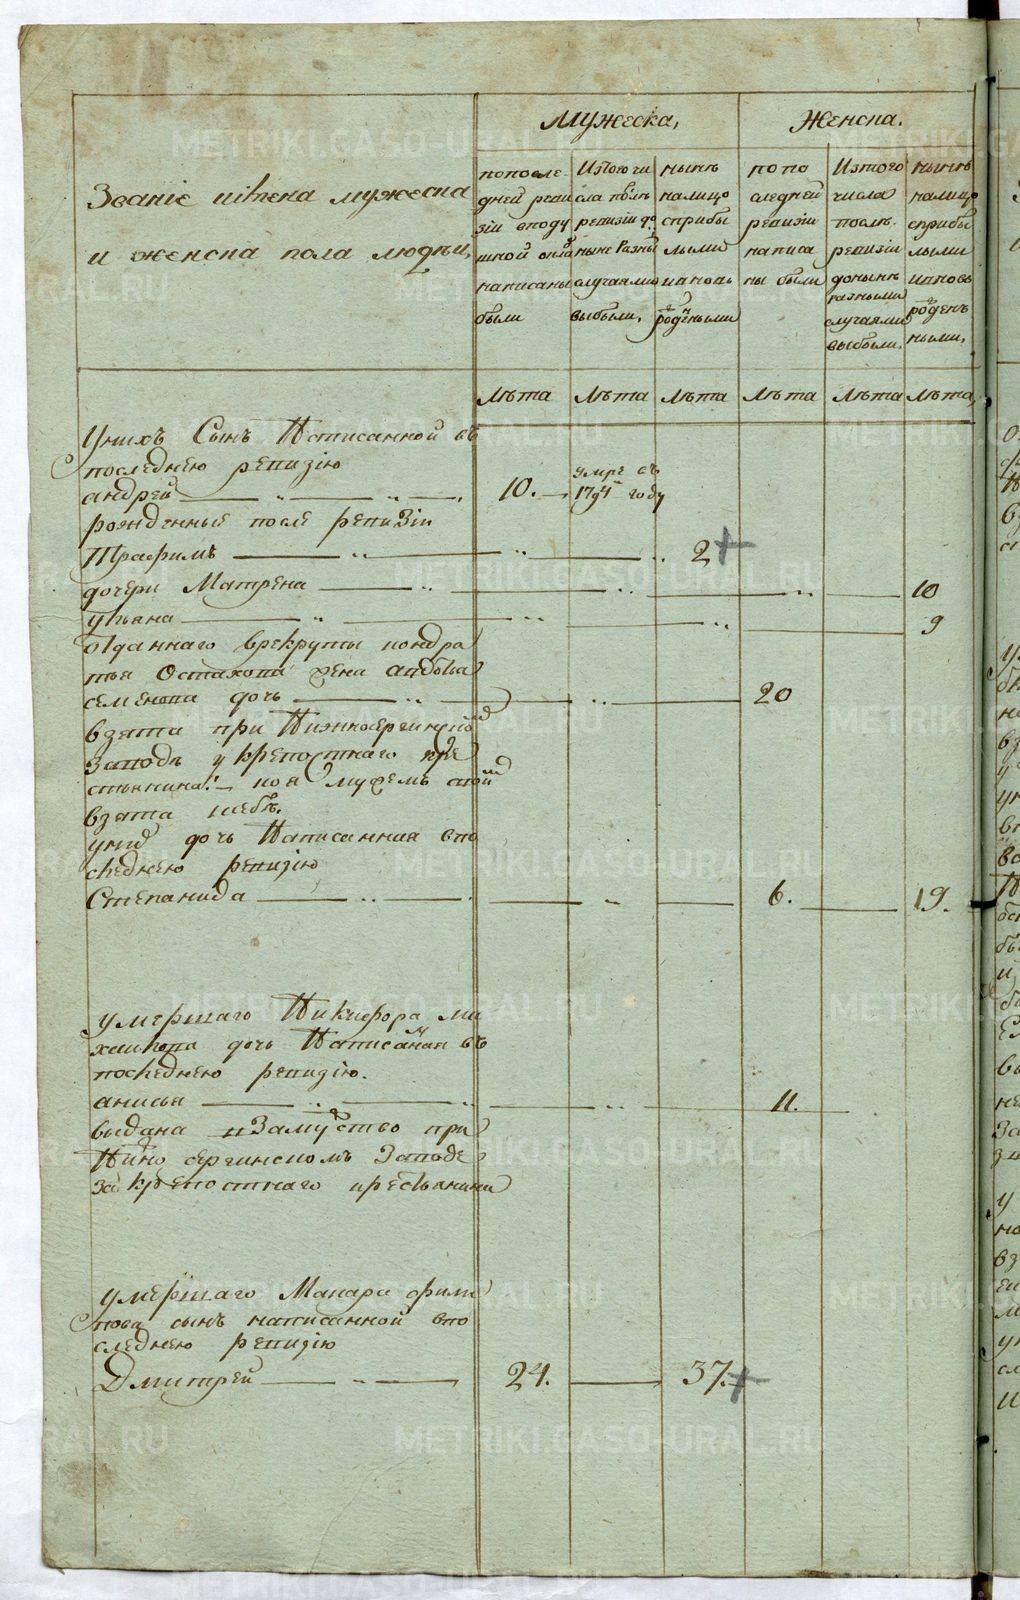 Мужеска,
Женска.
Званіе иімена мужеска
и женска пола людѣи,
попосле-
дней реви
зіи вподу
шной окла
написаны
были
Изтого чи
сла послѣ
ревизіи до
нынѣ Разны
случаями
выбыли,
нынѣ
налицо
сприбы
лыми
ивновь
рожденными
попо
следней
ревизіи
написа
ны были
Изтого
числа
послѣ
ревизіи
донынѣ
разными
случаями
выбыли,
нынѣ
налицо
сприбы
лыми
ивновь
рожден
ными,
лѣта лѣта лѣта лѣта лѣта лѣта,
Унихъ Сынъ Написанной въ
последнею ревизію
андрей 10. умре въ 1794 году
рожденные после ревизіи
Трафимъ 2
дочери Матрена 10
ульяна 9
отданнаго врекруты кондра
тья Остахова жена авдотья
семенова дочь 20
взята при Нижносергинской
заводѣ у крепостнаго кре
стьянина, коя мужемъ
взята ксебѣ.
уней дочь Написанная впо
следнею ревизію
Степанида 6. 19.
умершаго Никифора ми
хайлова дочь Написанная въ
последнею ревизію.
анисья 11.
выдана взамужство при
Нижно сергинскомъ Заводе
за крепостнаго крестьянина
умершаго Макара фили
пова сынъ написанной впо
следнею ревизію
Дмитрей 24. 37.
METRIKI.GASO-URAL.RU